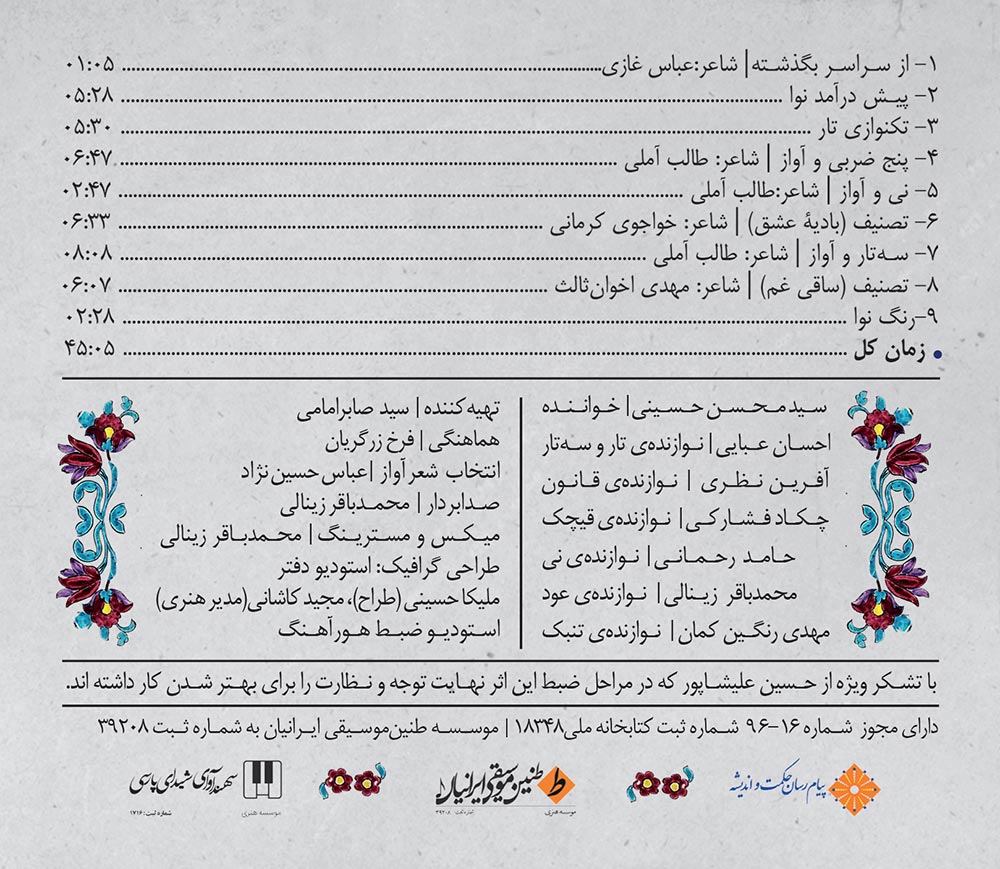 ۱- از سراسر بگذشته| شاعر:عباس غازی............ ۰۱:۰۵
۲- پیش درآمد نوا ............ ۰۵:۲۸
۳- تکنوازی تار ............ ۰۵:۳۰
۴- پنج ضربی و آواز | شاعر: طالب آملی ............ ۰۶:۴۷
۵- نی و آواز | شاعر:طالب آملی ............ ۰۲:۴۷
۶- تصنیف (بادیهٔ عشق) | شاعر: خواجوی کرمانی ............ ۰۶:۳۳
۷- سه‌تار و آواز | شاعر: طالب آملی ............ ۰۸:۰۸
۸- تصنیف (ساقی غم) | شاعر: مهدی اخوان‌ثالث ............ ۰۶:۰۷
۹-رنگ نوا ............ ۰۲:۲۸
• زمان کل ............ ۴۵:۰۵
سیدمحسن حسینی| خواننده
احسان عبایی| نوازنده‌ی تار و سه‌تار
آفرین نظری | نوازنده‌ی قانون
چکاد فشارکی| نوازنده‌ی قیچک
حامد رحمانی| نوازنده‌ی نی
محمدباقر زینالی| نوازنده‌ی عود
مهدی رنگین کمان| نوازنده‌ی تنبک
تهیه‌کننده | سید صابرامامی
هماهنگی | فرخ زرگریان
انتخاب شعر آواز |عباس حسین نژاد
صدابردار | محمدباقر زینالی
میکس و مسترینگ | محمدباقر زینالی
طراحی گرافیک: استودیو دفتر
ملیکا حسینی (طراح)، مجید کاشانی(مدیر هنری)
استودیو ضبط هورآهنگ
با تشکر ویژه از حسین علیشاپور که در مراحل ضبط این اثر نهایت توجه و نظارت را برای بهتر شدن کار داشته اند.
دارای مجوز شماره ۱۶-۹۶ شماره ثبت کتابخانه ملی۱۸۳۴۸ | موسسه طنین‌موسیقی ایرانیان به شماره ثبت ۳۹۲۰۸
پیام رسان حکمت و اندیشه
طنین موسیقی ایرانیان
موسسه هنری
شماره ثبت: ۳۹۲۰۸
سهند آوای شیدای پارسی
موسسه هنری
شماره ثبت: ۱۷۱۶